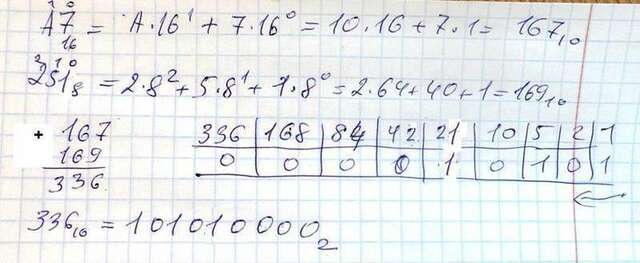 A7₁₆ = A·16¹ + 7·16⁰ = 10·16 + 7·1 = 167₁₀
251₈ = 2·8² + 5·8¹ + 1·8⁰ = 2·64 + 40 + 1 = 169₁₀
+ 167
169
336
336 | 168 | 84 | 42 | 21 | 10 | 5 | 2 | 1
0 | 0 | 0 | 0 | 1 | 0 | 1 | 0 | 1
336₁₀ = 101010000₂